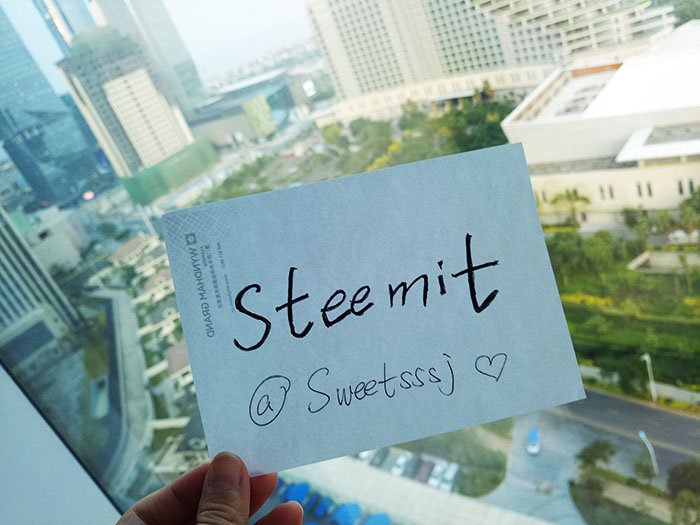 Steemit
@ Sweetsssj ♡
WYNDHAM GRAND